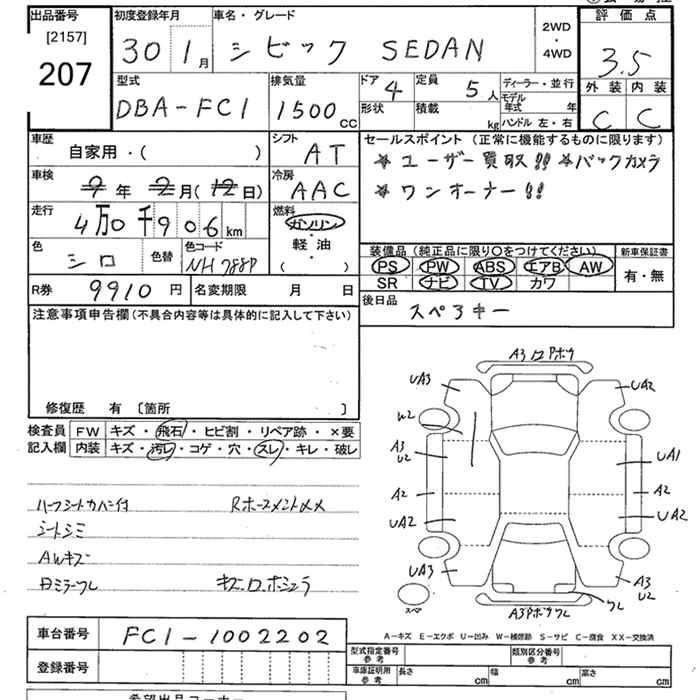 出品番号 初度登録年月 車名・グレード 2WD・4WD 評価点
[2157]
207 30 1月 シビック SEDAN 3.5
外装 内装
C C
型式 排気量 ドア 定員 ディーラー・並行
DBA-FC1 1500CC 4 5人 モデル年式 年
形状 積載 kg ハンドル 左・右
車歴 シフト セールスポイント (正常に機能するものに限ります)
自家用・( ) AT ＊ユーザー買取!! ＊バックカメラ
車検 冷房
9年2月(12日) AAC ＊ワンオーナー!!
走行 燃料
4万0千906km ガソリン・軽油・( )
色 色替 色コード 装備品 (純正品に限り○をつけてください) 新車保証書
シロ NH788P PS PW ABS エアB AW 有・無
SR ナビ TV カワ
R券 9910円 名変期限 月 日 後日品
スペアキー
注意事項申告欄 (不具合内容等は具体的に記入して下さい)
修復歴 有 〔箇所 〕
検査員記入欄 FW キズ・飛石・ヒビ割・リペア跡・×要
内装 キズ・汚レ・コゲ・穴・スレ・キレ・破レ
ハーフシートカバー付
シートシミ
AWキズ
A3 UA3 UA2
W2
A3
U2 UA1
A2 A2
UA2 UA2
UA3 A3
U2
スペ
A－キズ E－エクボ U－凹み W－補修跡 S－サビ C－腐食 XX－交換済
車台番号 FC1-1002202 型式指定番号 参考 類別区分番号 参考
登録番号 車庫証明用 参考 長さ cm 幅 cm 高さ cm
希望出品コーナー